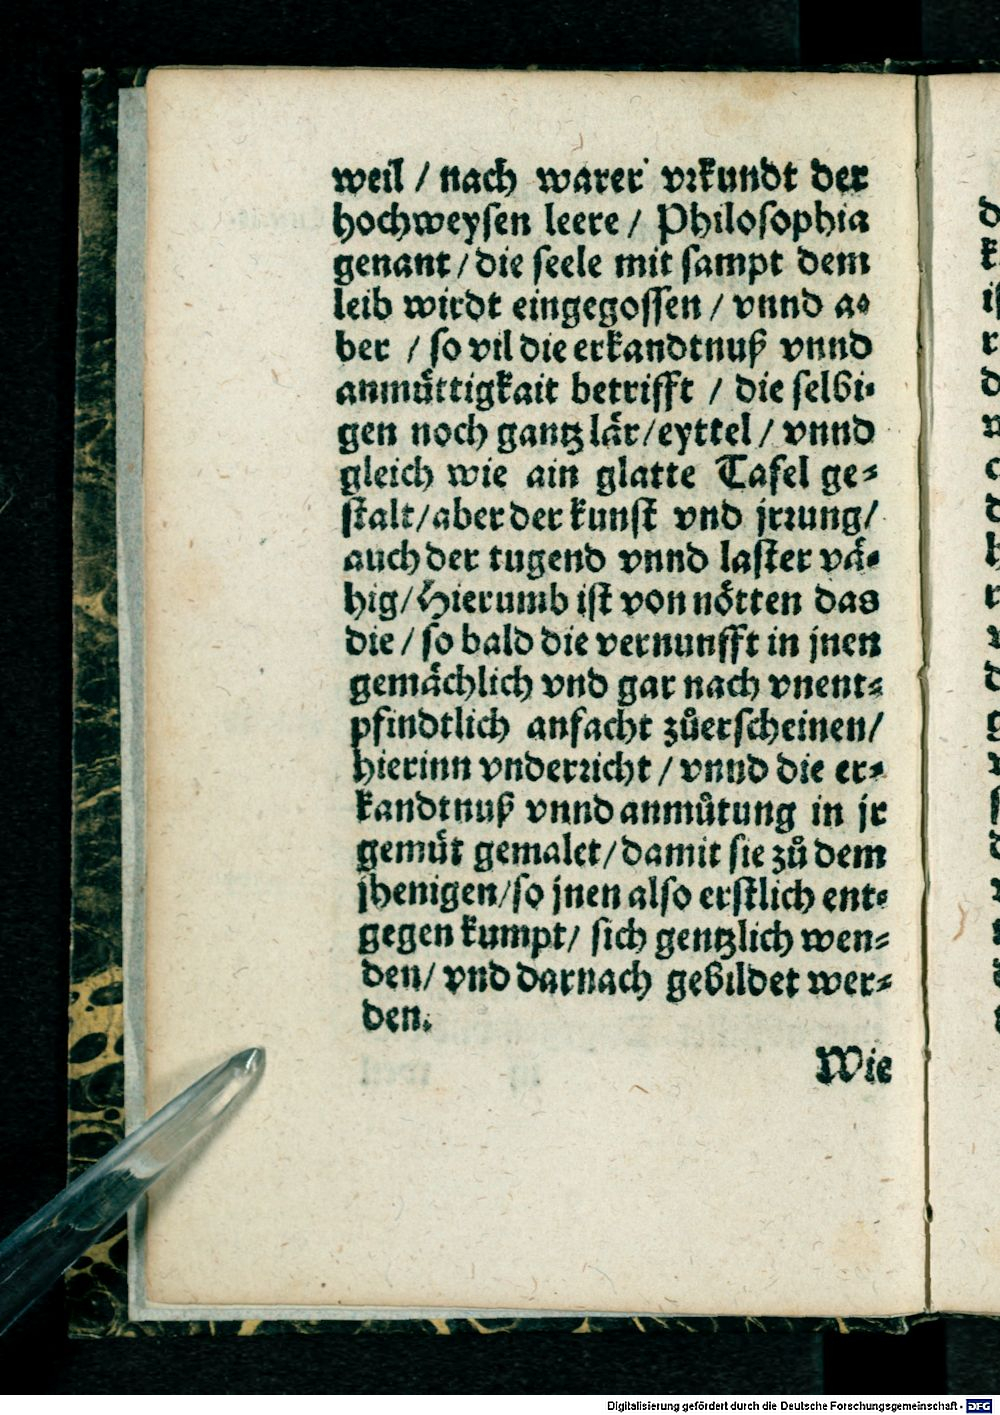 weil / nach warer vrkundt der
hochweysen leere / Philosophia
genant / die seele mit sampt dem
leib wirdt eingegossen / vnnd a⸗
ber / so vil die erkandtnuß vnnd
anmuͤttigkait betrifft / die selbi⸗
gen noch gantz laͤr / eyttel / vnnd
gleich wie ain glatte Tafel ge⸗
stalt / aber der kunst vnd jrrung /
auch der tugend vnnd laster vaͤ⸗
hig / Hierumb ist von noͤtten das
die / so bald die vernunfft in jnen
gemaͤchlich vnd gar nach vnent⸗
pfindtlich anfacht zuͦerscheinen /
hierinn vnderricht / vnnd die er⸗
kandtnuß vnnd anmuͦtung in jr
gemuͤt gemalet / damit sie zuͦ dem
jhenigen / so jnen also erstlich ent⸗
gegen kumpt / sich gentzlich wen⸗
den / vnd darnach gebildet wer⸗
den.
Wie
Digitalisierung gefördert durch die Deutsche Forschungsgemeinschaft - DFG